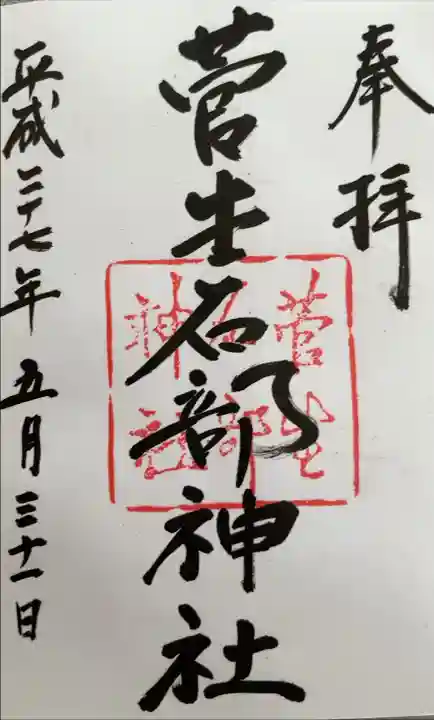 奉拝
菅生石部神社
菅生石部神社
平成二十七年五月三十一日